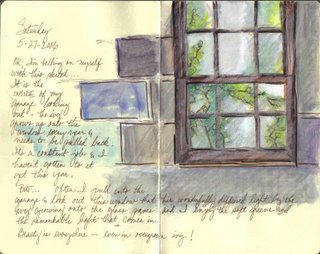 Saturday
5-27-2006
OK, I'm telling on myself
with this sketch...
It is the
inside of my
garage looking
out - the ivy
grows up into the
window every year &
needs to be pulled back.
It's a constant job & I
haven't gotten to it
yet this year.
But... often I pull into the
garage & look out this window that has wonderfully diffused light by the
ivy growing onto the glass panes and I enjoy the soft greens and
the remarkable light that comes in.
Beauty is everywhere - even in overgrown ivy!